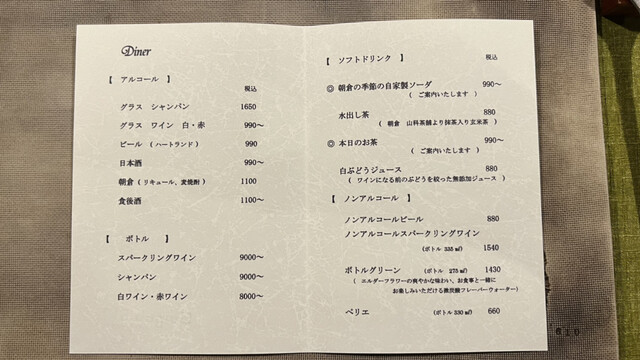 Diner
【 アルコール 】
税込
グラス シャンパン 1650
グラス ワイン 白・赤 990〜
ビール ( ハートランド ) 990
日本酒 990〜
朝倉 ( リキュール、麦焼酎 ) 1100
食後酒 1100〜
【 ボトル 】
スパークリングワイン 9000〜
シャンパン 9000〜
白ワイン・赤ワイン 8000〜
【 ソフトドリンク 】 税込
◎ 朝倉の季節の自家製ソーダ 990〜
( ご案内いたします )
水出し茶 880
( 朝倉 山科茶舗より抹茶入り玄米茶 )
◎ 本日のお茶 990〜
( ご案内いたします )
白ぶどうジュース 880
( ワインになる前のぶどうを絞った無添加ジュース )
【 ノンアルコール 】
ノンアルコールビール 880
ノンアルコールスパークリングワイン
(ボトル 335 ㎖) 1540
ボトルグリーン (ボトル 275 ㎖) 1430
( エルダーフラワーの爽やかな味わい、お食事と一緒に
お楽しみいただける微炭酸フレーバーウォーター)
ペリエ (ボトル 330 ㎖) 660